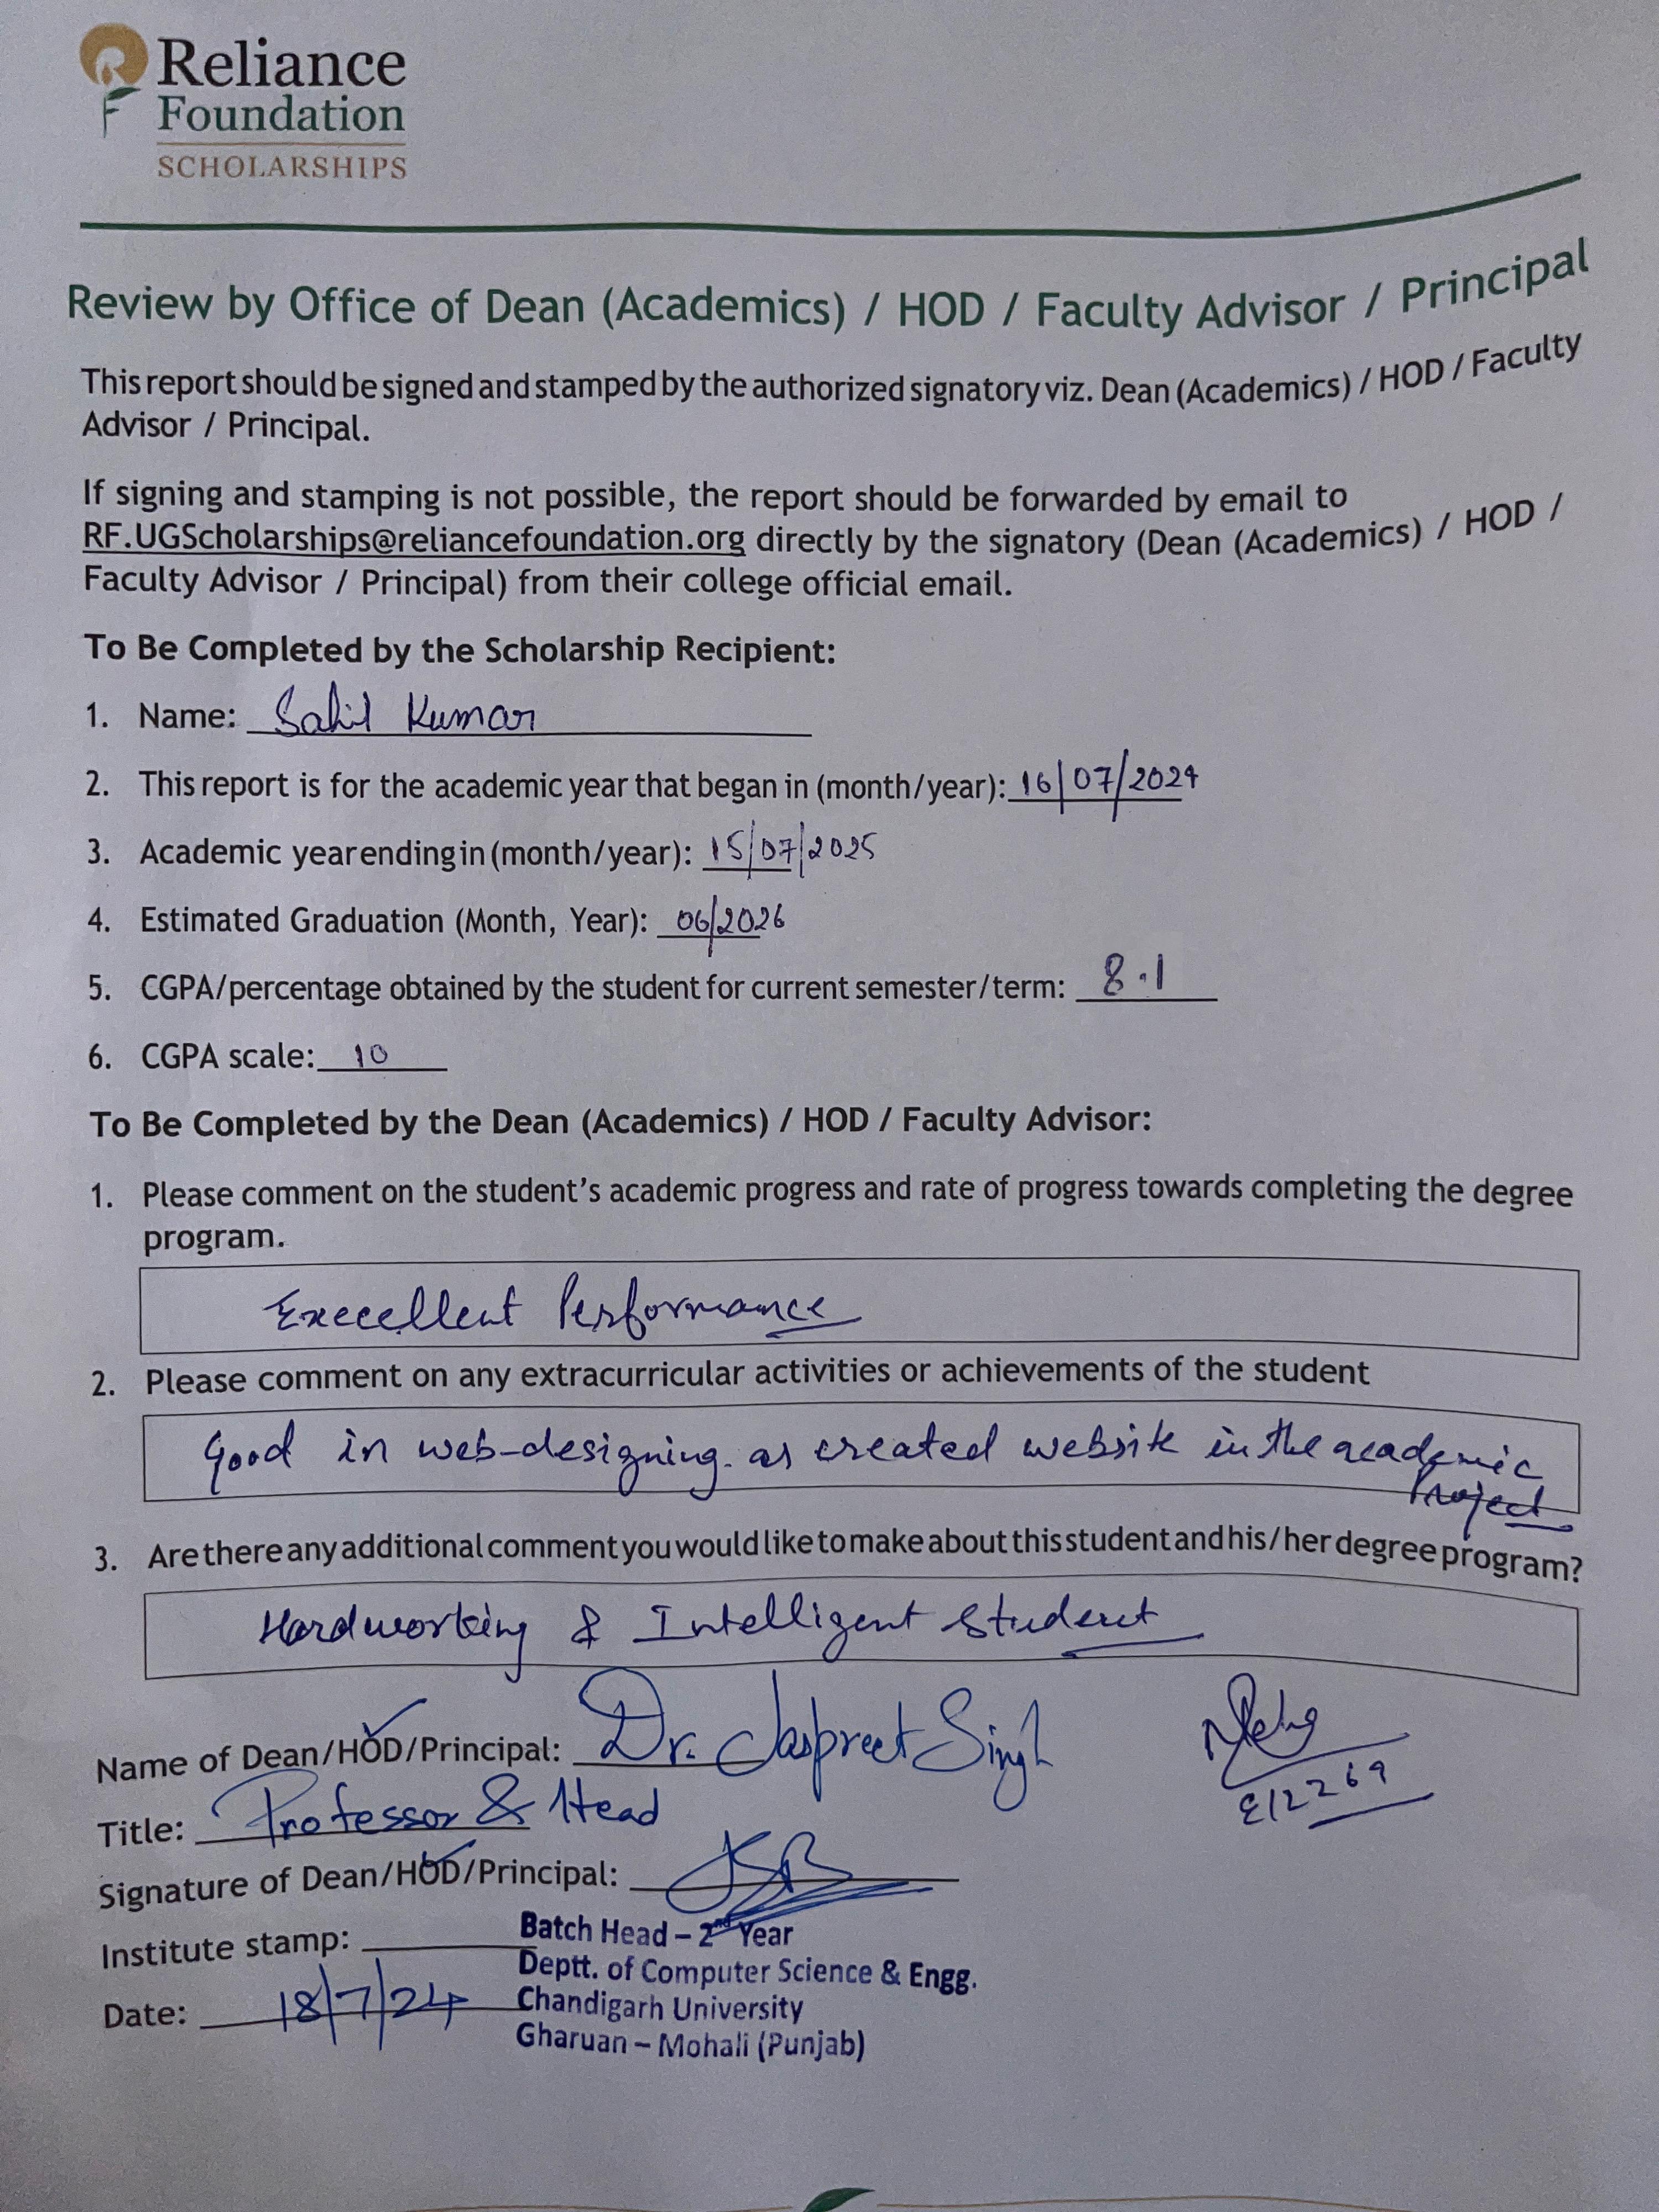 Reliance
Foundation
SCHOLARSHIPS
Review by Office of Dean (Academics) / HOD / Faculty Advisor / Principal
This report should be signed and stamped by the authorized signatory viz. Dean (Academics) / HOD / Faculty
Advisor / Principal.
If signing and stamping is not possible, the report should be forwarded by email to
RF.UGScholarships@reliancefoundation.org directly by the signatory (Dean (Academics) / HOD /
Faculty Advisor / Principal) from their college official email.
To Be Completed by the Scholarship Recipient:
1. Name: Sahil Kumar
2. This report is for the academic year that began in (month/year): 16/07/2024
3. Academic year ending in (month/year): 15/07/2025
4. Estimated Graduation (Month, Year): 06/2026
5. CGPA/percentage obtained by the student for current semester/term: 8.1
6. CGPA scale: 10
To Be Completed by the Dean (Academics) / HOD / Faculty Advisor:
1. Please comment on the student's academic progress and rate of progress towards completing the degree
program.
Execellent Performance
2. Please comment on any extracurricular activities or achievements of the student
Good in web-designing. as created website in the academic
Project
3. Are there any additional comment you would like to make about this student and his/her degree program?
Hardworking & Intelligent student
Name of Dean/HOD/Principal: Dr. Jaspreet Singh
E12269
Title: Professor & Head
Signature of Dean/HOD/Principal:
Institute stamp:
Batch Head – 2nd Year
Deptt. of Computer Science & Engg.
Chandigarh University
Gharuan – Mohali (Punjab)
Date: 18/7/24